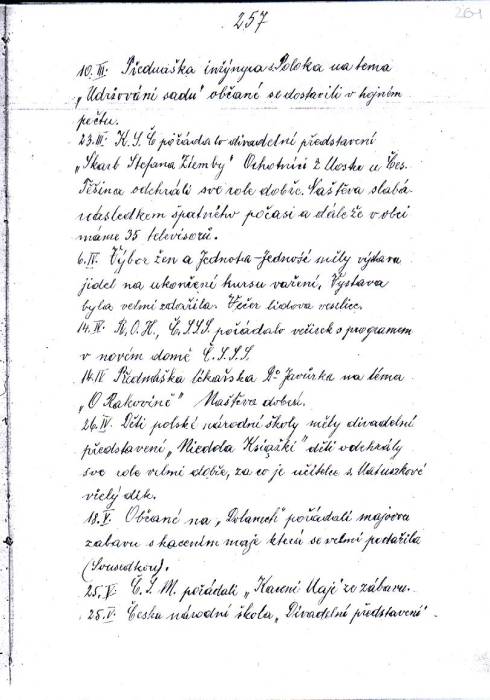 257
261
10.III. Předmáška inžýnyra s. Poloka na tema
„Udržování sadu" občané se dostavili v hojném
počtu.
23.III. K.S.Č pořádalo divadelní představení
„Skarb Stefana Ziemby" Ochotnici z Uoske u Čes.
Těšina odehráli své role dobře. Naštěva slabá
následkem špatného počasi a dále že v obci
máme 35 televisorů.
6.IV. Výbor žen a Jednota-Jedność měly výstavu
jidel na ukončení kursu vaření. Vystava
byla velmi zdařila. Večer lidova veselice.
14.IV. R.O.H., Č.S.S.S. pořádalo večírek s programem
v novém domě Č.S.S.S.
16.IV Předmáška lékařska Dr Javůrka na téma
„O Rakovině" Naštěva dobrá.
26.IV. Děti polské národní školy měly divadelní
představení „Niedola Książki" děti odehrály
své role velmi dobře, za co je učitelce s. Matuszkové
vřelý dík.
18.V. Občané na „Dolanech" pořádali majovou
zabavu s kacením maje která se velmi podařila
(Sousedkou).
25.V. Č.S.M. pořádali „Kaceni Maje" ze zábavu.
25.V. Česka národní škola „Divadelní představení"